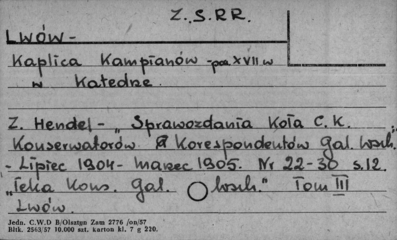 Z.S.R.R.
Lwów -
Kaplica Kampianów - pocz XVII w
w Katedrze.
Z. Hendel - „Sprawozdania Koła C.K.
Konserwatorów i Korespondentów Gal. wsch."
- Lipiec 1904 - marzec 1905. Nr 22-30 s.12.
„Teka Kons. Gal. Wsch." Tom III
Lwów.
Jedn. C.W.D B/Olsztyn Zam 2776 /on/57
Bltk. 2563/57 10.000 szt. karton kl. 7 g 220.